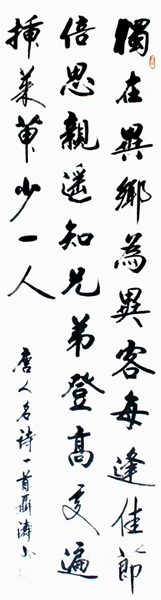 獨在異鄉為異客每逢佳節
倍思親遥知兄弟登高處遍
插茱萸少一人
唐人名詩一首聶濤書